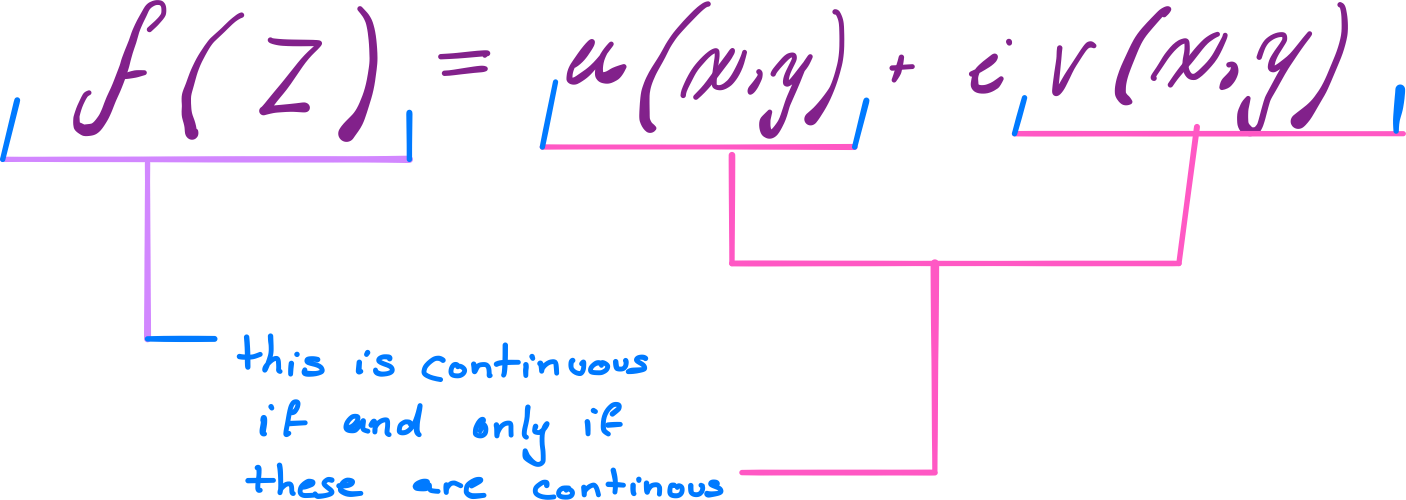 f(z) = u(x,y) + i v(x,y)
this is continuous
if and only if
these are continous